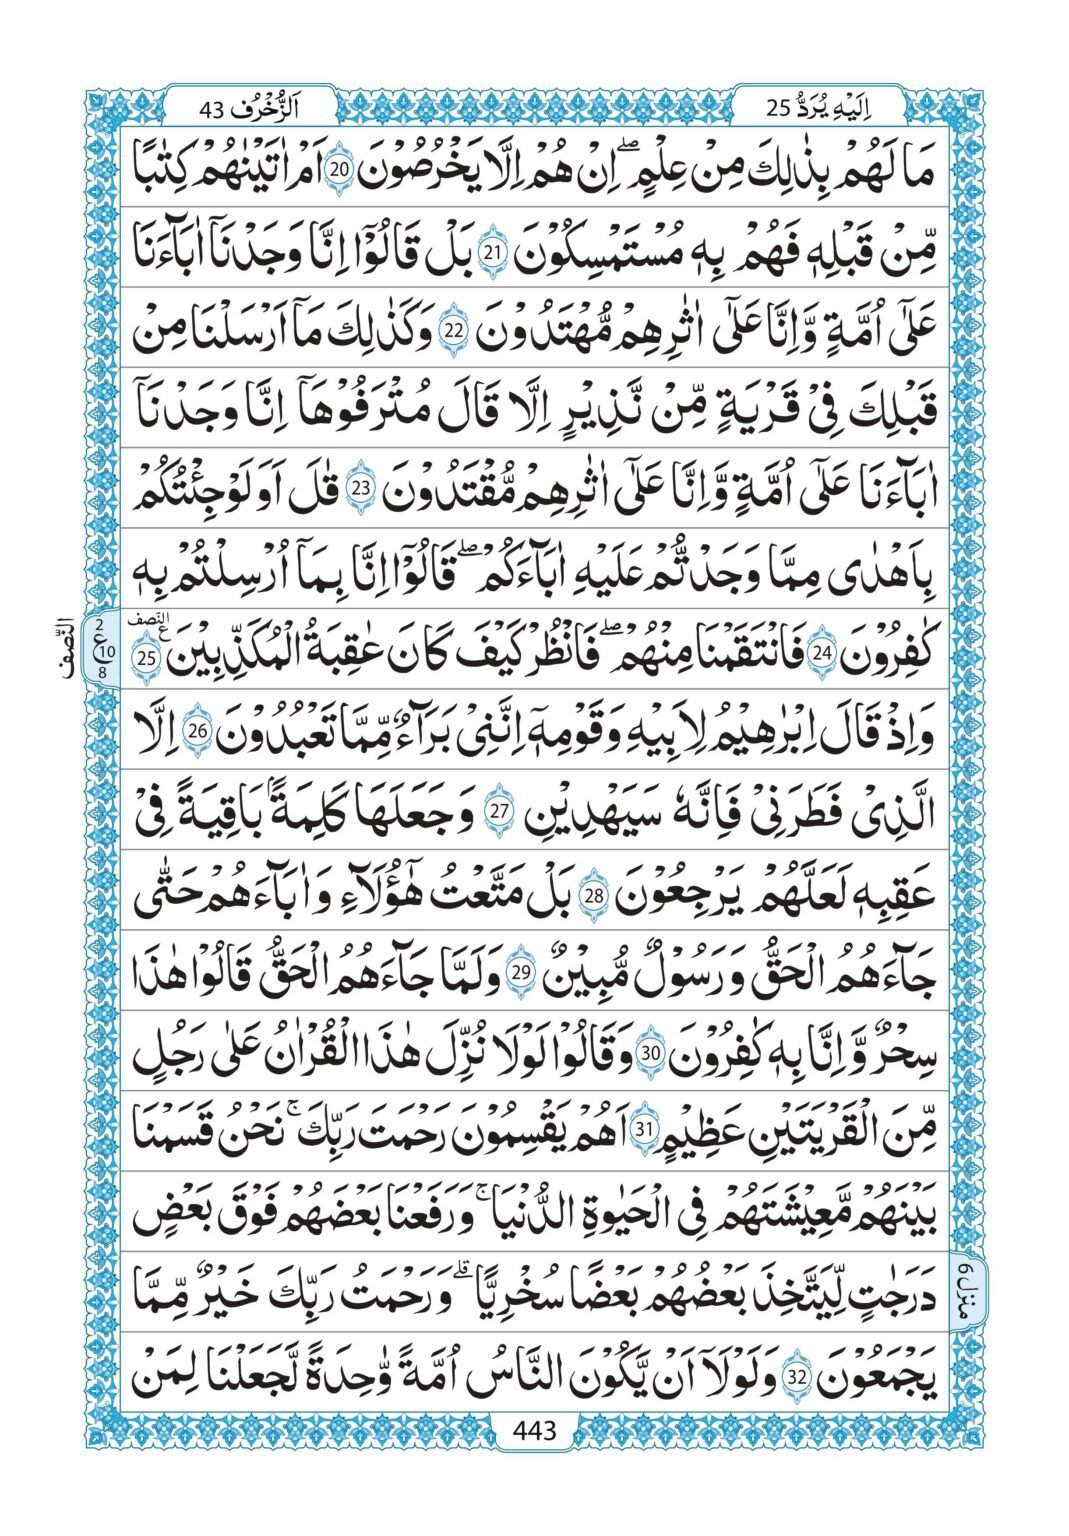 اِلَيْهِ يُرَدُّ 25
اَلزُّخْرُف 43
مَا لَهُمْ بِذٰلِكَ مِنْ عِلْمٍ ۖ اِنْ هُمْ اِلَّا يَخْرُصُوْنَ 20 اَمْ اٰتَيْنٰهُمْ كِتٰبًا
مِّنْ قَبْلِهٖ فَهُمْ بِهٖ مُسْتَمْسِكُوْنَ 21 بَلْ قَالُوْٓا اِنَّا وَجَدْنَآ اٰبَآءَنَا
عَلٰٓى اُمَّةٍ وَّاِنَّا عَلٰٓى اٰثٰرِهِمْ مُّهْتَدُوْنَ 22 وَكَذٰلِكَ مَآ اَرْسَلْنَا مِنْ
قَبْلِكَ فِيْ قَرْيَةٍ مِّنْ نَّذِيْرٍ اِلَّا قَالَ مُتْرَفُوْهَآ اِنَّا وَجَدْنَآ
اٰبَآءَنَا عَلٰٓى اُمَّةٍ وَّاِنَّا عَلٰٓى اٰثٰرِهِمْ مُّقْتَدُوْنَ 23 قٰلَ اَوَلَوْ جِئْتُكُمْ
بِاَهْدٰى مِمَّا وَجَدْتُّمْ عَلَيْهِ اٰبَآءَكُمْ ۖ قَالُوْٓا اِنَّا بِمَآ اُرْسِلْتُمْ بِهٖ
كٰفِرُوْنَ 24 فَانْتَقَمْنَا مِنْهُمْ ۖ فَانْظُرْ كَيْفَ كَانَ عٰقِبَةُ الْمُكَذِّبِيْنَ 25 النّصف ع
النّصف
2 ع 10 8
وَاِذْ قَالَ اِبْرٰهِيْمُ لِاَبِيْهِ وَقَوْمِهٖٓ اِنَّنِيْ بَرَآءٌ مِّمَّا تَعْبُدُوْنَ 26 اِلَّا
الَّذِيْ فَطَرَنِيْ فَاِنَّهٗ سَيَهْدِيْنِ 27 وَجَعَلَهَا كَلِمَةًۢ بَاقِيَةً فِيْ
عَقِبِهٖ لَعَلَّهُمْ يَرْجِعُوْنَ 28 بَلْ مَتَّعْتُ هٰٓؤُلَآءِ وَاٰبَآءَهُمْ حَتّٰى
جَآءَهُمُ الْحَقُّ وَرَسُوْلٌ مُّبِيْنٌ 29 وَلَمَّا جَآءَهُمُ الْحَقُّ قَالُوْا هٰذَا
سِحْرٌ وَّاِنَّا بِهٖ كٰفِرُوْنَ 30 وَقَالُوْا لَوْلَا نُزِّلَ هٰذَا الْقُرْاٰنُ عَلٰى رَجُلٍ
مِّنَ الْقَرْيَتَيْنِ عَظِيْمٍ 31 اَهُمْ يَقْسِمُوْنَ رَحْمَتَ رَبِّكَ ۚ نَحْنُ قَسَمْنَا
بَيْنَهُمْ مَّعِيْشَتَهُمْ فِي الْحَيٰوةِ الدُّنْيَا ۚ وَرَفَعْنَا بَعْضَهُمْ فَوْقَ بَعْضٍ
دَرَجٰتٍ لِّيَتَّخِذَ بَعْضُهُمْ بَعْضًا سُخْرِيًّا ۗ وَرَحْمَتُ رَبِّكَ خَيْرٌ مِّمَّا
منزل 6
يَجْمَعُوْنَ 32 وَلَوْلَآ اَنْ يَّكُوْنَ النَّاسُ اُمَّةً وّٰحِدَةً لَّجَعَلْنَا لِمَنْ
443